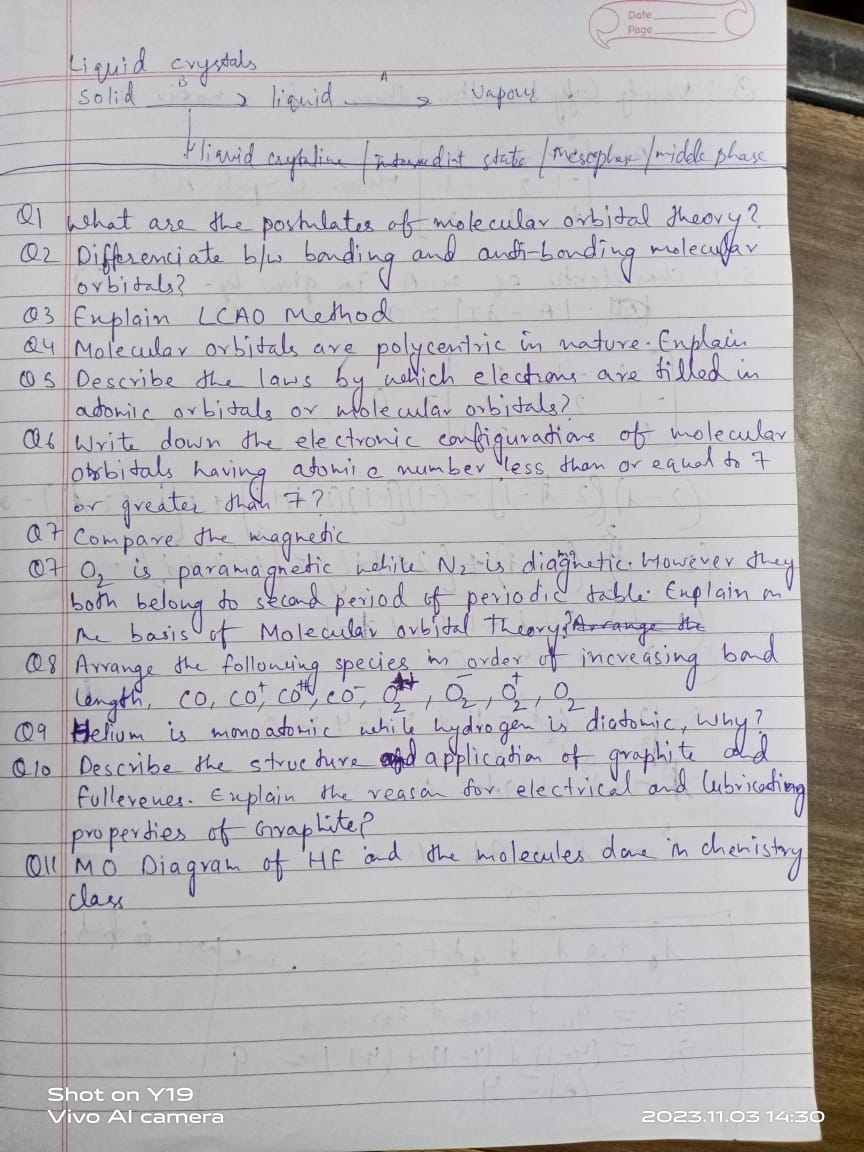 Date
Page
Liquid crystals
B A
solid → liquid → vapour
liquid crytaline / intermediat state / mesophase / middle phase
Q1 What are the postulates of molecular orbital theory?
Q2 Differenciate b/w bonding and anti-bonding molecular
orbitals?
Q3 Explain LCAO Method
Q4 Molecular orbitals are polycentric in nature. Explain
Q5 Describe the laws by which electrons are filled in
atomic orbitals or molecular orbitals?
Q6 Write down the electronic configurations of molecular
orbitals having atomic number less than or equal to 7
or greater than 7?
Q7 Compare the magnetic
Q7 O₂ is paramagnetic while N₂ is diagmnetic. However they
both belong to second period of periodic table. Explain on
the basis of Molecular orbital Theory? Arrange the
Q8 Arrange the following species in order of increasing bond
length, CO, CO⁺, CO⁺⁺, CO⁻, O₂⁺⁺, O₂⁻, O₂⁺, O₂
Q9 Helium is monoatomic while hydrogen is diatomic, why?
Q10 Describe the structure and application of graphite and
fullerenes. Explain the reason for electrical and lubricating
properties of Graphite?
Q11 MO Diagram of HF and the molecules done in chemistry
class
Shot on Y19
Vivo AI camera
2023.11.03 14:30